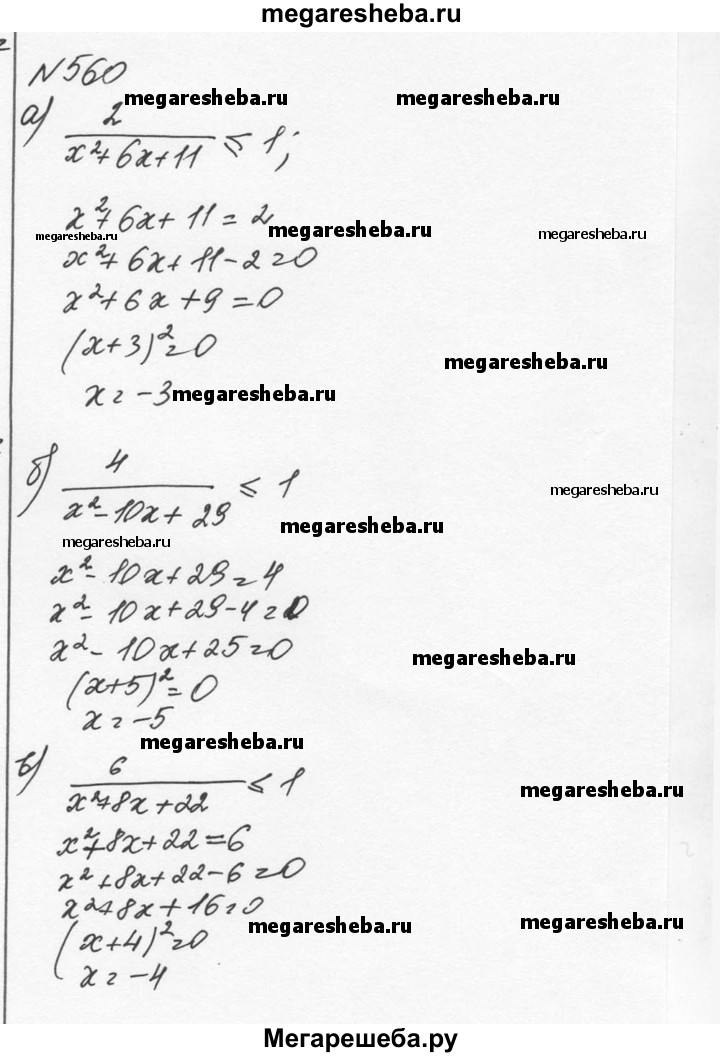 megaresheba.ru
N560
а) 2/(x²+6x+11) ≤ 1;
megaresheba.ru megaresheba.ru
x²+6x+11=2
megaresheba.ru megaresheba.ru megaresheba.ru
x²+6x+11-2=0
x²+6x+9=0
(x+3)²=0
megaresheba.ru
x=-3
megaresheba.ru
б) 4/(x²-10x+29) ≤ 1
megaresheba.ru
megaresheba.ru
megaresheba.ru
x²-10x+29=4
x²-10x+29-4=0
x²-10x+25=0
megaresheba.ru
(x+5)²=0
x=-5
megaresheba.ru
в) 6/(x²+8x+22) ≤ 1
megaresheba.ru
x²+8x+22=6
x²+8x+22-6=0
x²+8x+16=0
megaresheba.ru megaresheba.ru
(x+4)²=0
x=-4
Мегарешеба.ру